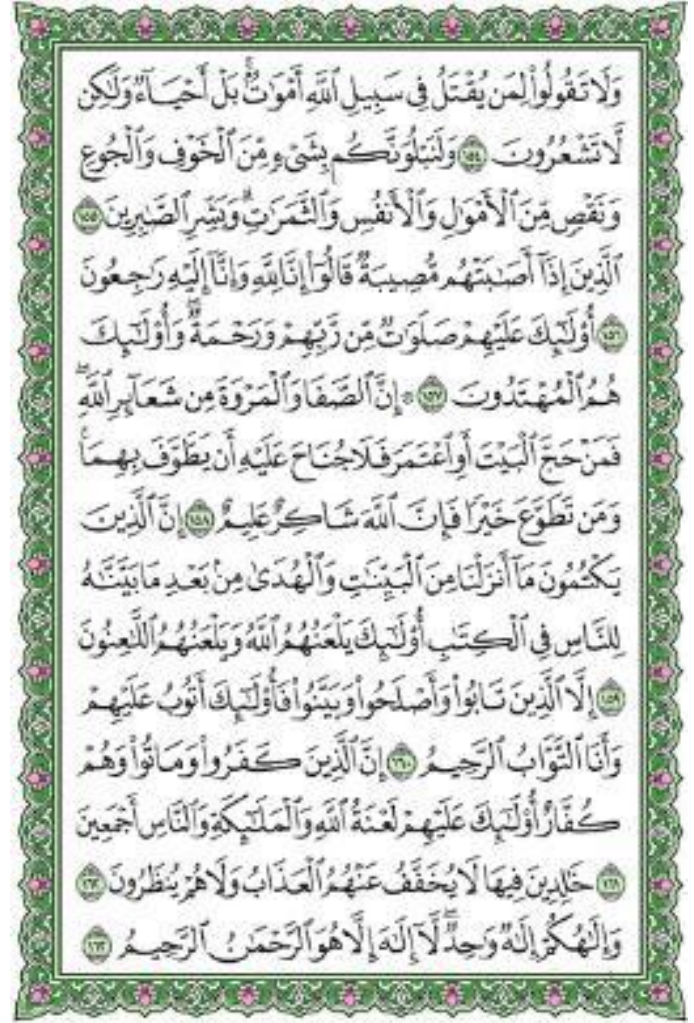 وَلَا تَقُولُواْ لِمَن يُقْتَلُ فِي سَبِيلِ ٱللَّهِ أَمْوَٰتُۢۚ بَلْ أَحْيَآءٞ وَلَٰكِن
لَّا تَشْعُرُونَ ١٥٤ وَلَنَبْلُوَنَّكُم بِشَيْءٖ مِّنَ ٱلْخَوْفِ وَٱلْجُوعِ
وَنَقْصٖ مِّنَ ٱلْأَمْوَٰلِ وَٱلْأَنفُسِ وَٱلثَّمَرَٰتِۗ وَبَشِّرِ ٱلصَّٰبِرِينَ ١٥٥
ٱلَّذِينَ إِذَآ أَصَٰبَتْهُم مُّصِيبَةٞ قَالُوٓاْ إِنَّا لِلَّهِ وَإِنَّآ إِلَيْهِ رَٰجِعُونَ
١٥٦ أُوْلَٰٓئِكَ عَلَيْهِمْ صَلَوَٰتٞ مِّن رَّبِّهِمْ وَرَحْمَةٞۖ وَأُوْلَٰٓئِكَ
هُمُ ٱلْمُهْتَدُونَ ١٥٧ ۞ إِنَّ ٱلصَّفَا وَٱلْمَرْوَةَ مِن شَعَآئِرِ ٱللَّهِۖ
فَمَنْ حَجَّ ٱلْبَيْتَ أَوِ ٱعْتَمَرَ فَلَا جُنَاحَ عَلَيْهِ أَن يَطَّوَّفَ بِهِمَاۚ
وَمَن تَطَوَّعَ خَيْرٗا فَإِنَّ ٱللَّهَ شَاكِرٌ عَلِيمٌ ١٥٨ إِنَّ ٱلَّذِينَ
يَكْتُمُونَ مَآ أَنزَلْنَا مِنَ ٱلْبَيِّنَٰتِ وَٱلْهُدَىٰ مِنۢ بَعْدِ مَا بَيَّنَّٰهُ
لِلنَّاسِ فِي ٱلْكِتَٰبِ أُوْلَٰٓئِكَ يَلْعَنُهُمُ ٱللَّهُ وَيَلْعَنُهُمُ ٱللَّٰعِنُونَ
١٥٩ إِلَّا ٱلَّذِينَ تَابُواْ وَأَصْلَحُواْ وَبَيَّنُواْ فَأُوْلَٰٓئِكَ أَتُوبُ عَلَيْهِمْ
وَأَنَا ٱلتَّوَّابُ ٱلرَّحِيمُ ١٦٠ إِنَّ ٱلَّذِينَ كَفَرُواْ وَمَاتُواْ وَهُمْ
كُفَّارٌ أُوْلَٰٓئِكَ عَلَيْهِمْ لَعْنَةُ ٱللَّهِ وَٱلْمَلَٰٓئِكَةِ وَٱلنَّاسِ أَجْمَعِينَ
١٦١ خَٰلِدِينَ فِيهَا لَا يُخَفَّفُ عَنْهُمُ ٱلْعَذَابُ وَلَا هُمْ يُنظَرُونَ ١٦٢
وَإِلَٰهُكُمْ إِلَٰهٞ وَٰحِدٞۖ لَّآ إِلَٰهَ إِلَّا هُوَ ٱلرَّحْمَٰنُ ٱلرَّحِيمُ ١٦٣